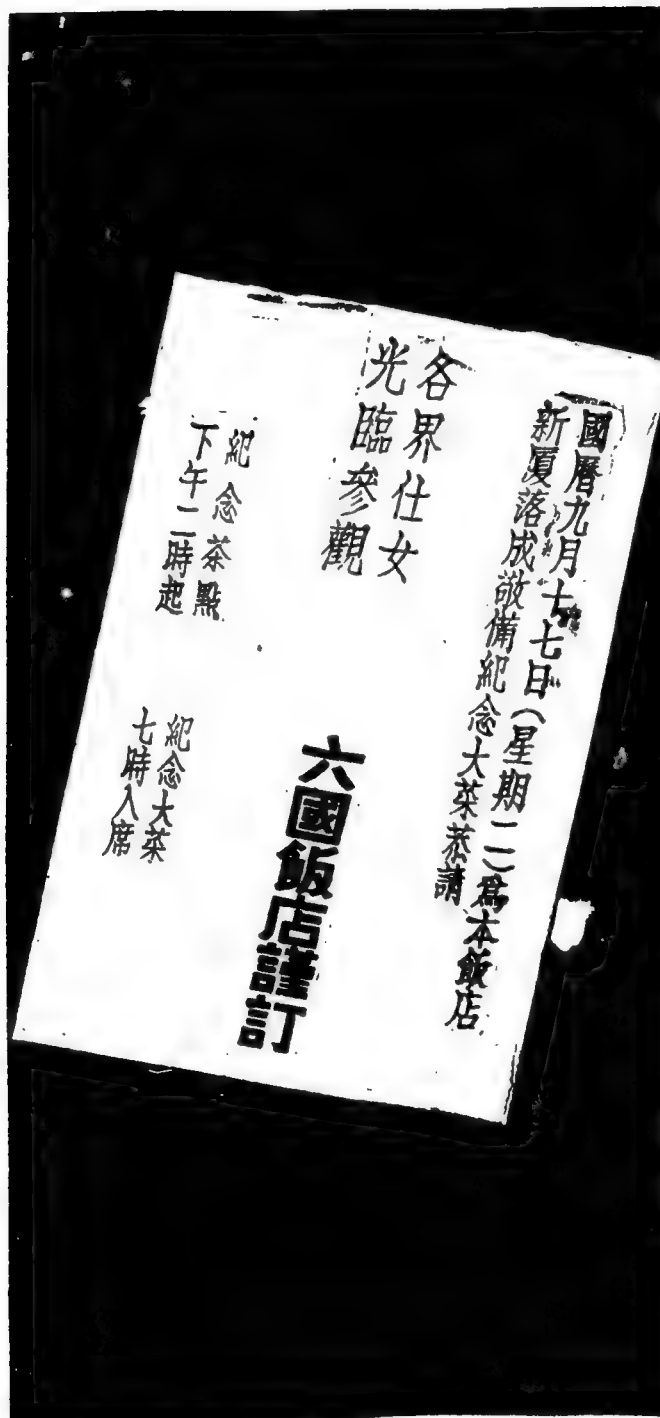 國曆九月十七日(星期二)爲本飯店
新厦落成敬備紀念大菜恭請
各界仕女
光臨參觀
六國飯店謹訂
紀念茶點
下午二時起
紀念大菜
七時入席